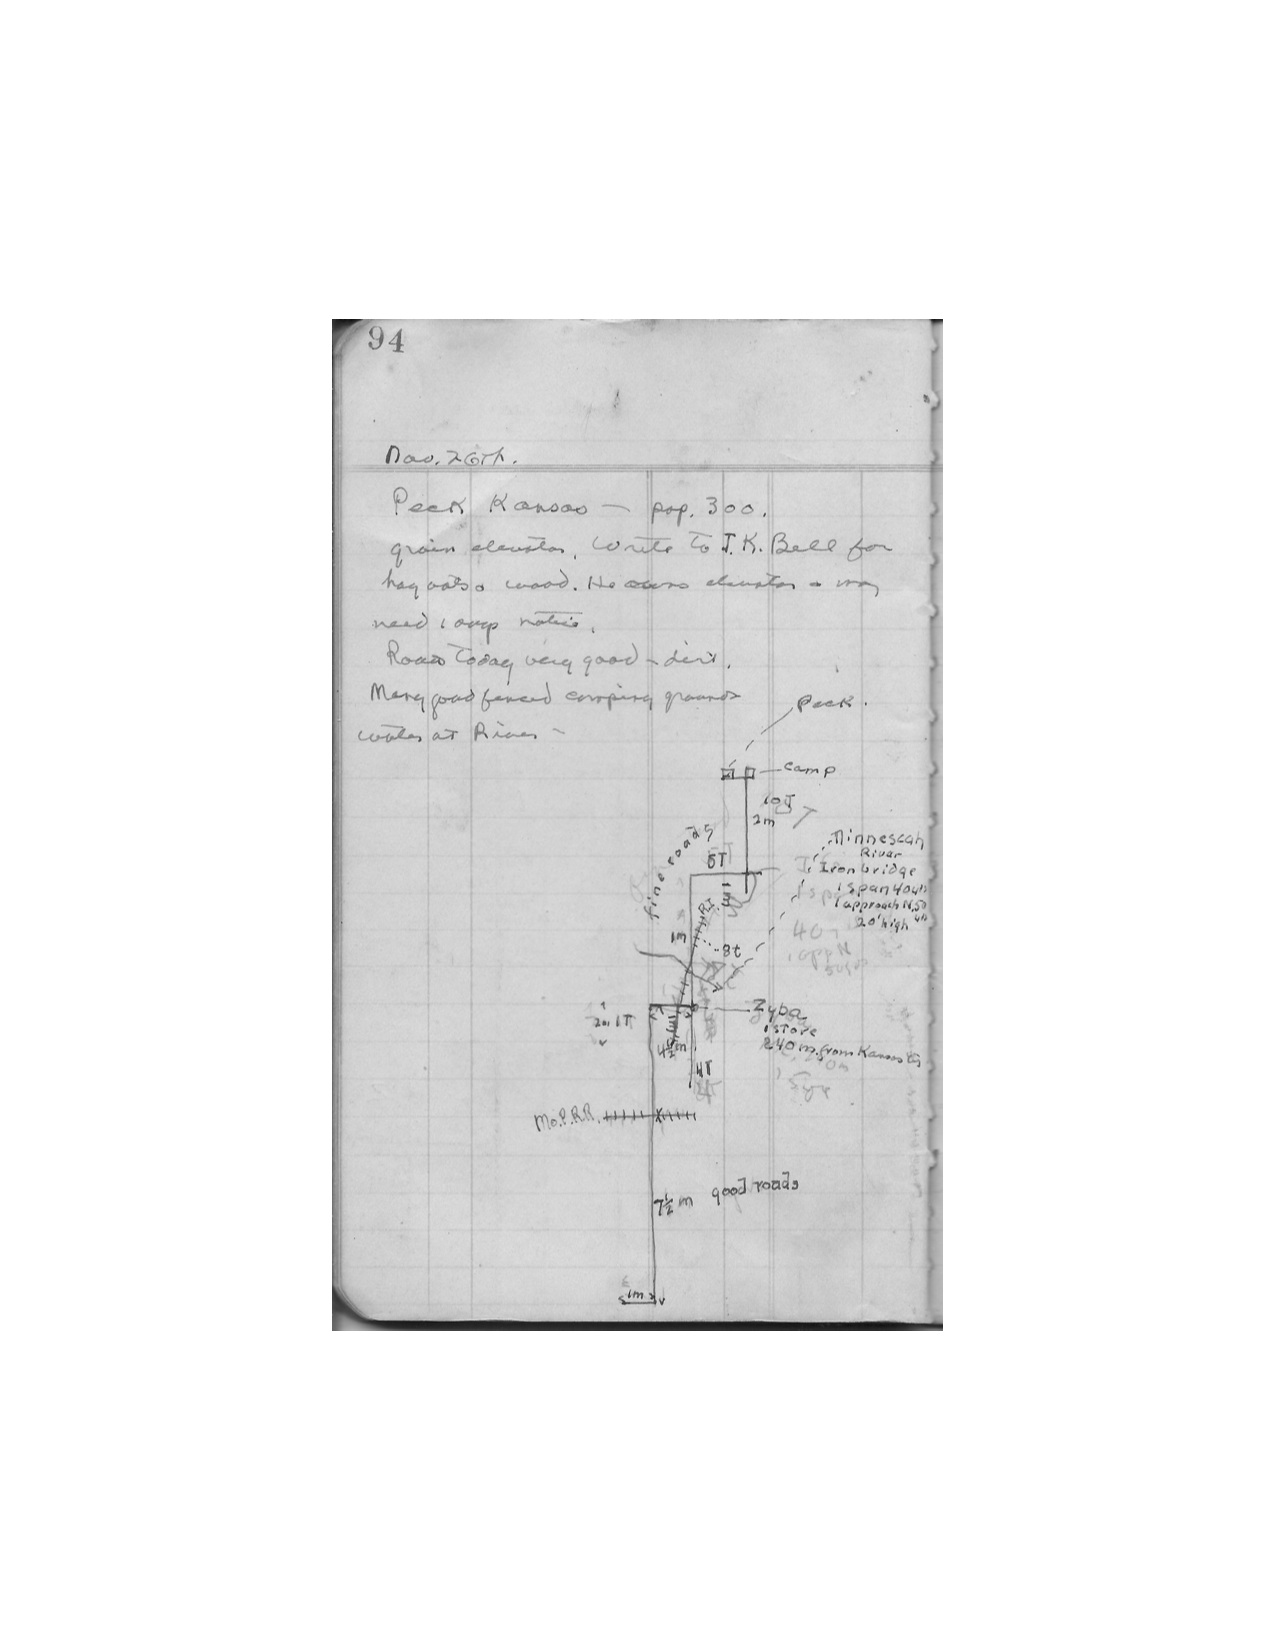 94
Nov. 26th.
Peck Kansas — pop. 300.
grain elevator. Write to J. K. Bell for
hay oats & wood. He owns elevator & may
need long notice.
Roads Today very good – dirt.
Many good fenced camping grounds
water at River –
Peck.
camp
10T
2m
fine roads
6T
Minnescah
River
Iron bridge
1 span 40 ft
1 approach N, 50
20' high
1m
R.I.
8t
Zyba
1 store
240 m. from Kansas City
1T
4½m
4T
Mo. P. R.R.
7½ m good roads
1m